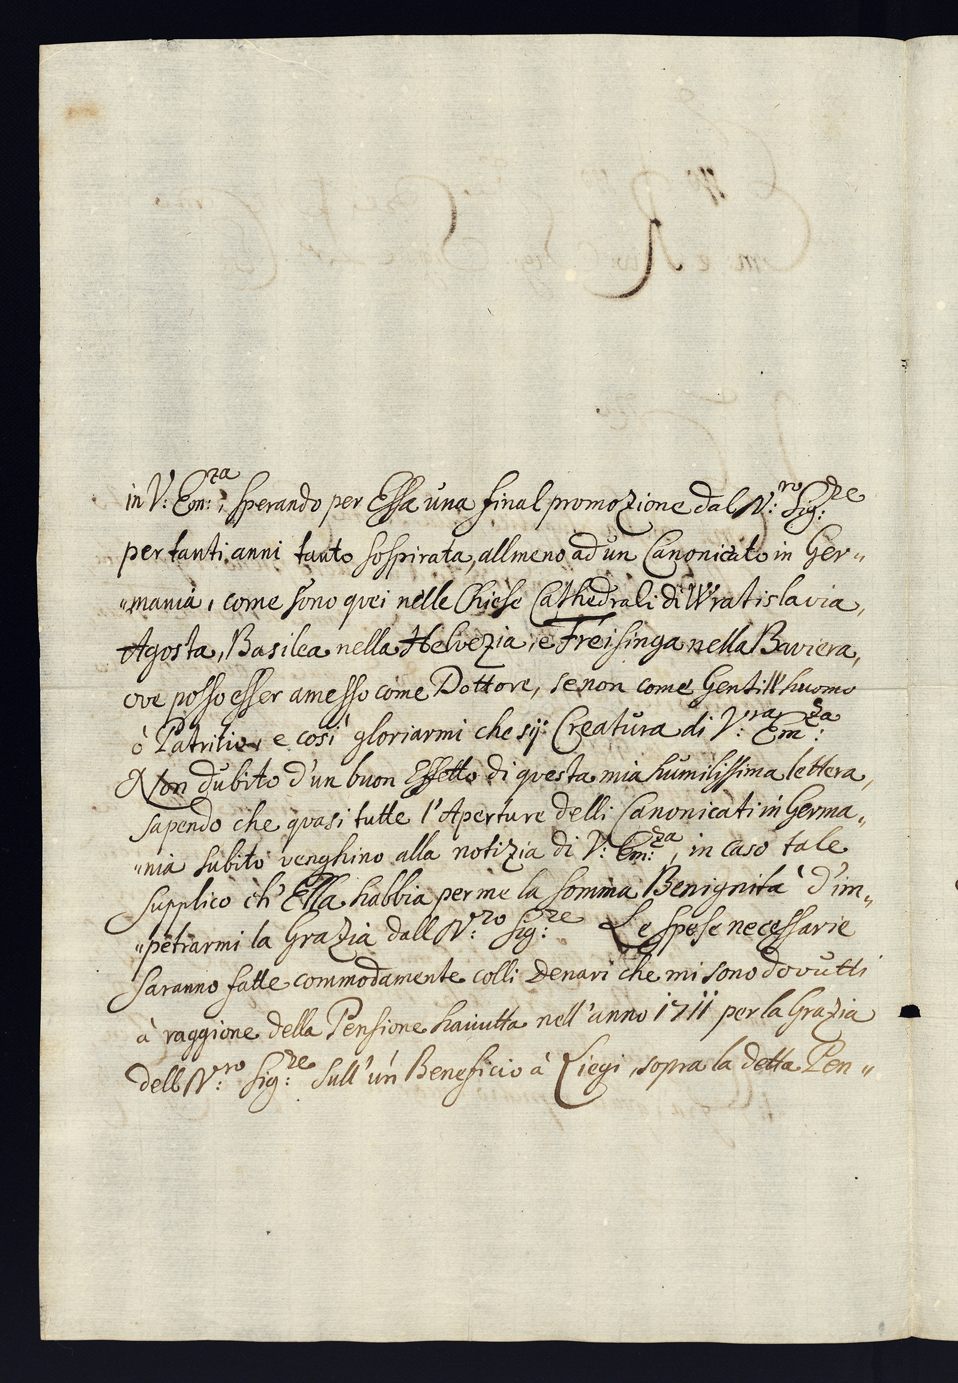 in V: Em:za, sperando per Essa una final promozione dal N:ro Sig:re
per tanti anni tanto sospirata, allmeno ad un Canonicato in Ger„
„mania, come sono quei nelle Chiese Cathedrali di Wratislavia,
Agosta, Basilea nella Helvezia, e Freisinga nella Baviera,
ove posso esser amesso come Dottore, se non come Gentill'huomo
ò Patritio, e così gloriarmi che sij Creatura di V:ra Em:za
Non dubito d'un buon Effetto di questa mia humilissima lettera,
sapendo che quasi tutte l'Aperture delli Canonicati in Germa„
„nia subito venghino alla notizia di V: Em:za, in caso tale
supplico ch' Ella habbia per me la somma Benignità d'im„
„petrarmi la Grazia dall N:ro Sig:re Le spese necessarie
saranno fatte commodamente colli Denari che mi sono dovutti
à raggione della Pensione havutta nell'anno 1711 per la Grazia
dell N:ro Sig:re sull'un Beneficio à Liegi, sopra la detta Pen„